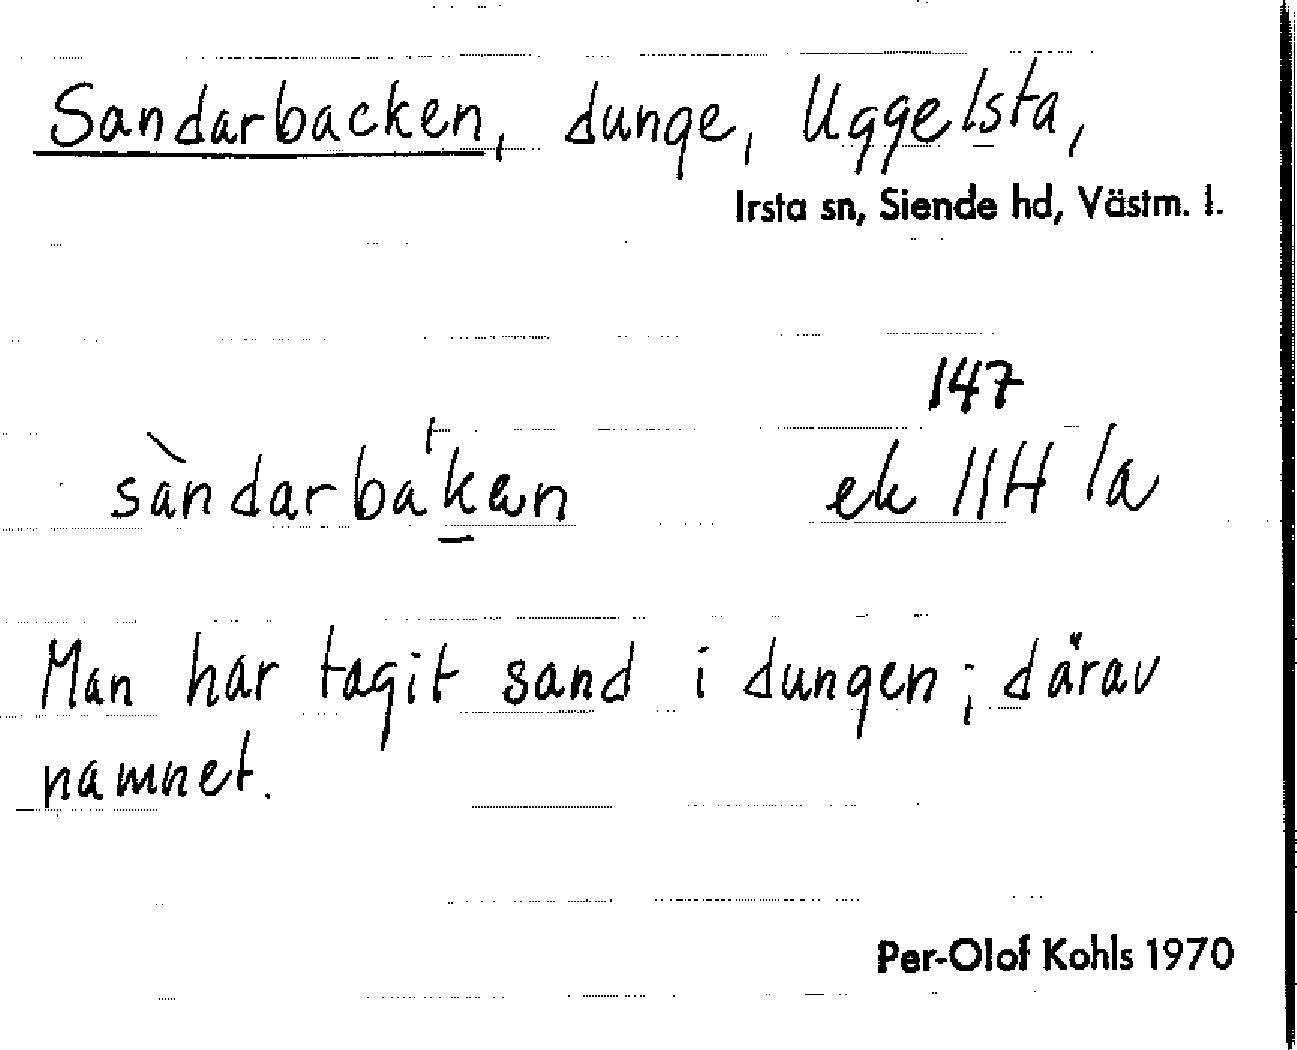 Sandarbacken, dunge, Uggelsta,
Irsta sn, Siende hd, Västm. l.
147
sàndarbaˈkən ek 11H 1a
Man har tagit sand i dungen; därav
namnet.
Per-Olof Kohls 1970